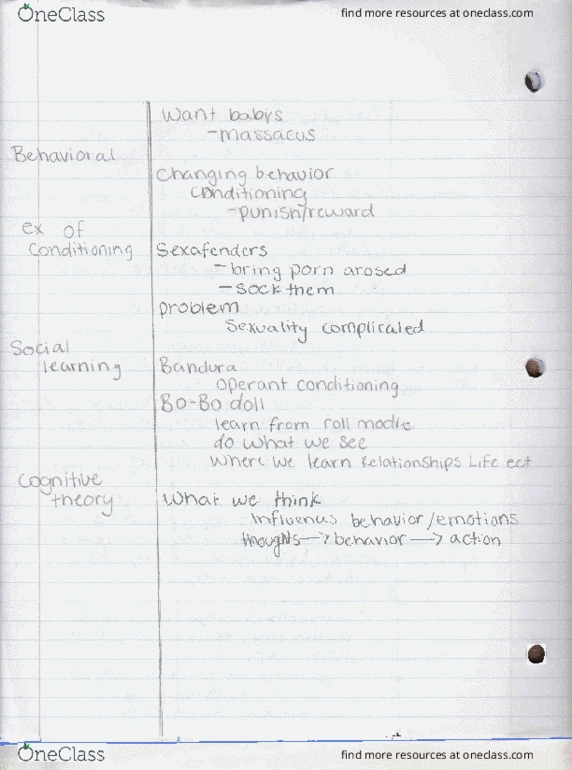 OneClass
find more resources at oneclass.com
Want babys
-massacus
Behavioral
Changing behavior
conditioning
-punish/reward
ex of
conditioning
Sexafenders
- bring porn arosed
- sock them
problem
Sexuality complicated
Social
learning
Bandura
operant conditioning
BO-BO doll
learn from roll modle
do what we see
Where we learn Relationships Life ect
Cognitive
theory
What we think
Influenus behavior/emotions
thoughts → behavior → action
OneClass
find more resources at oneclass.com